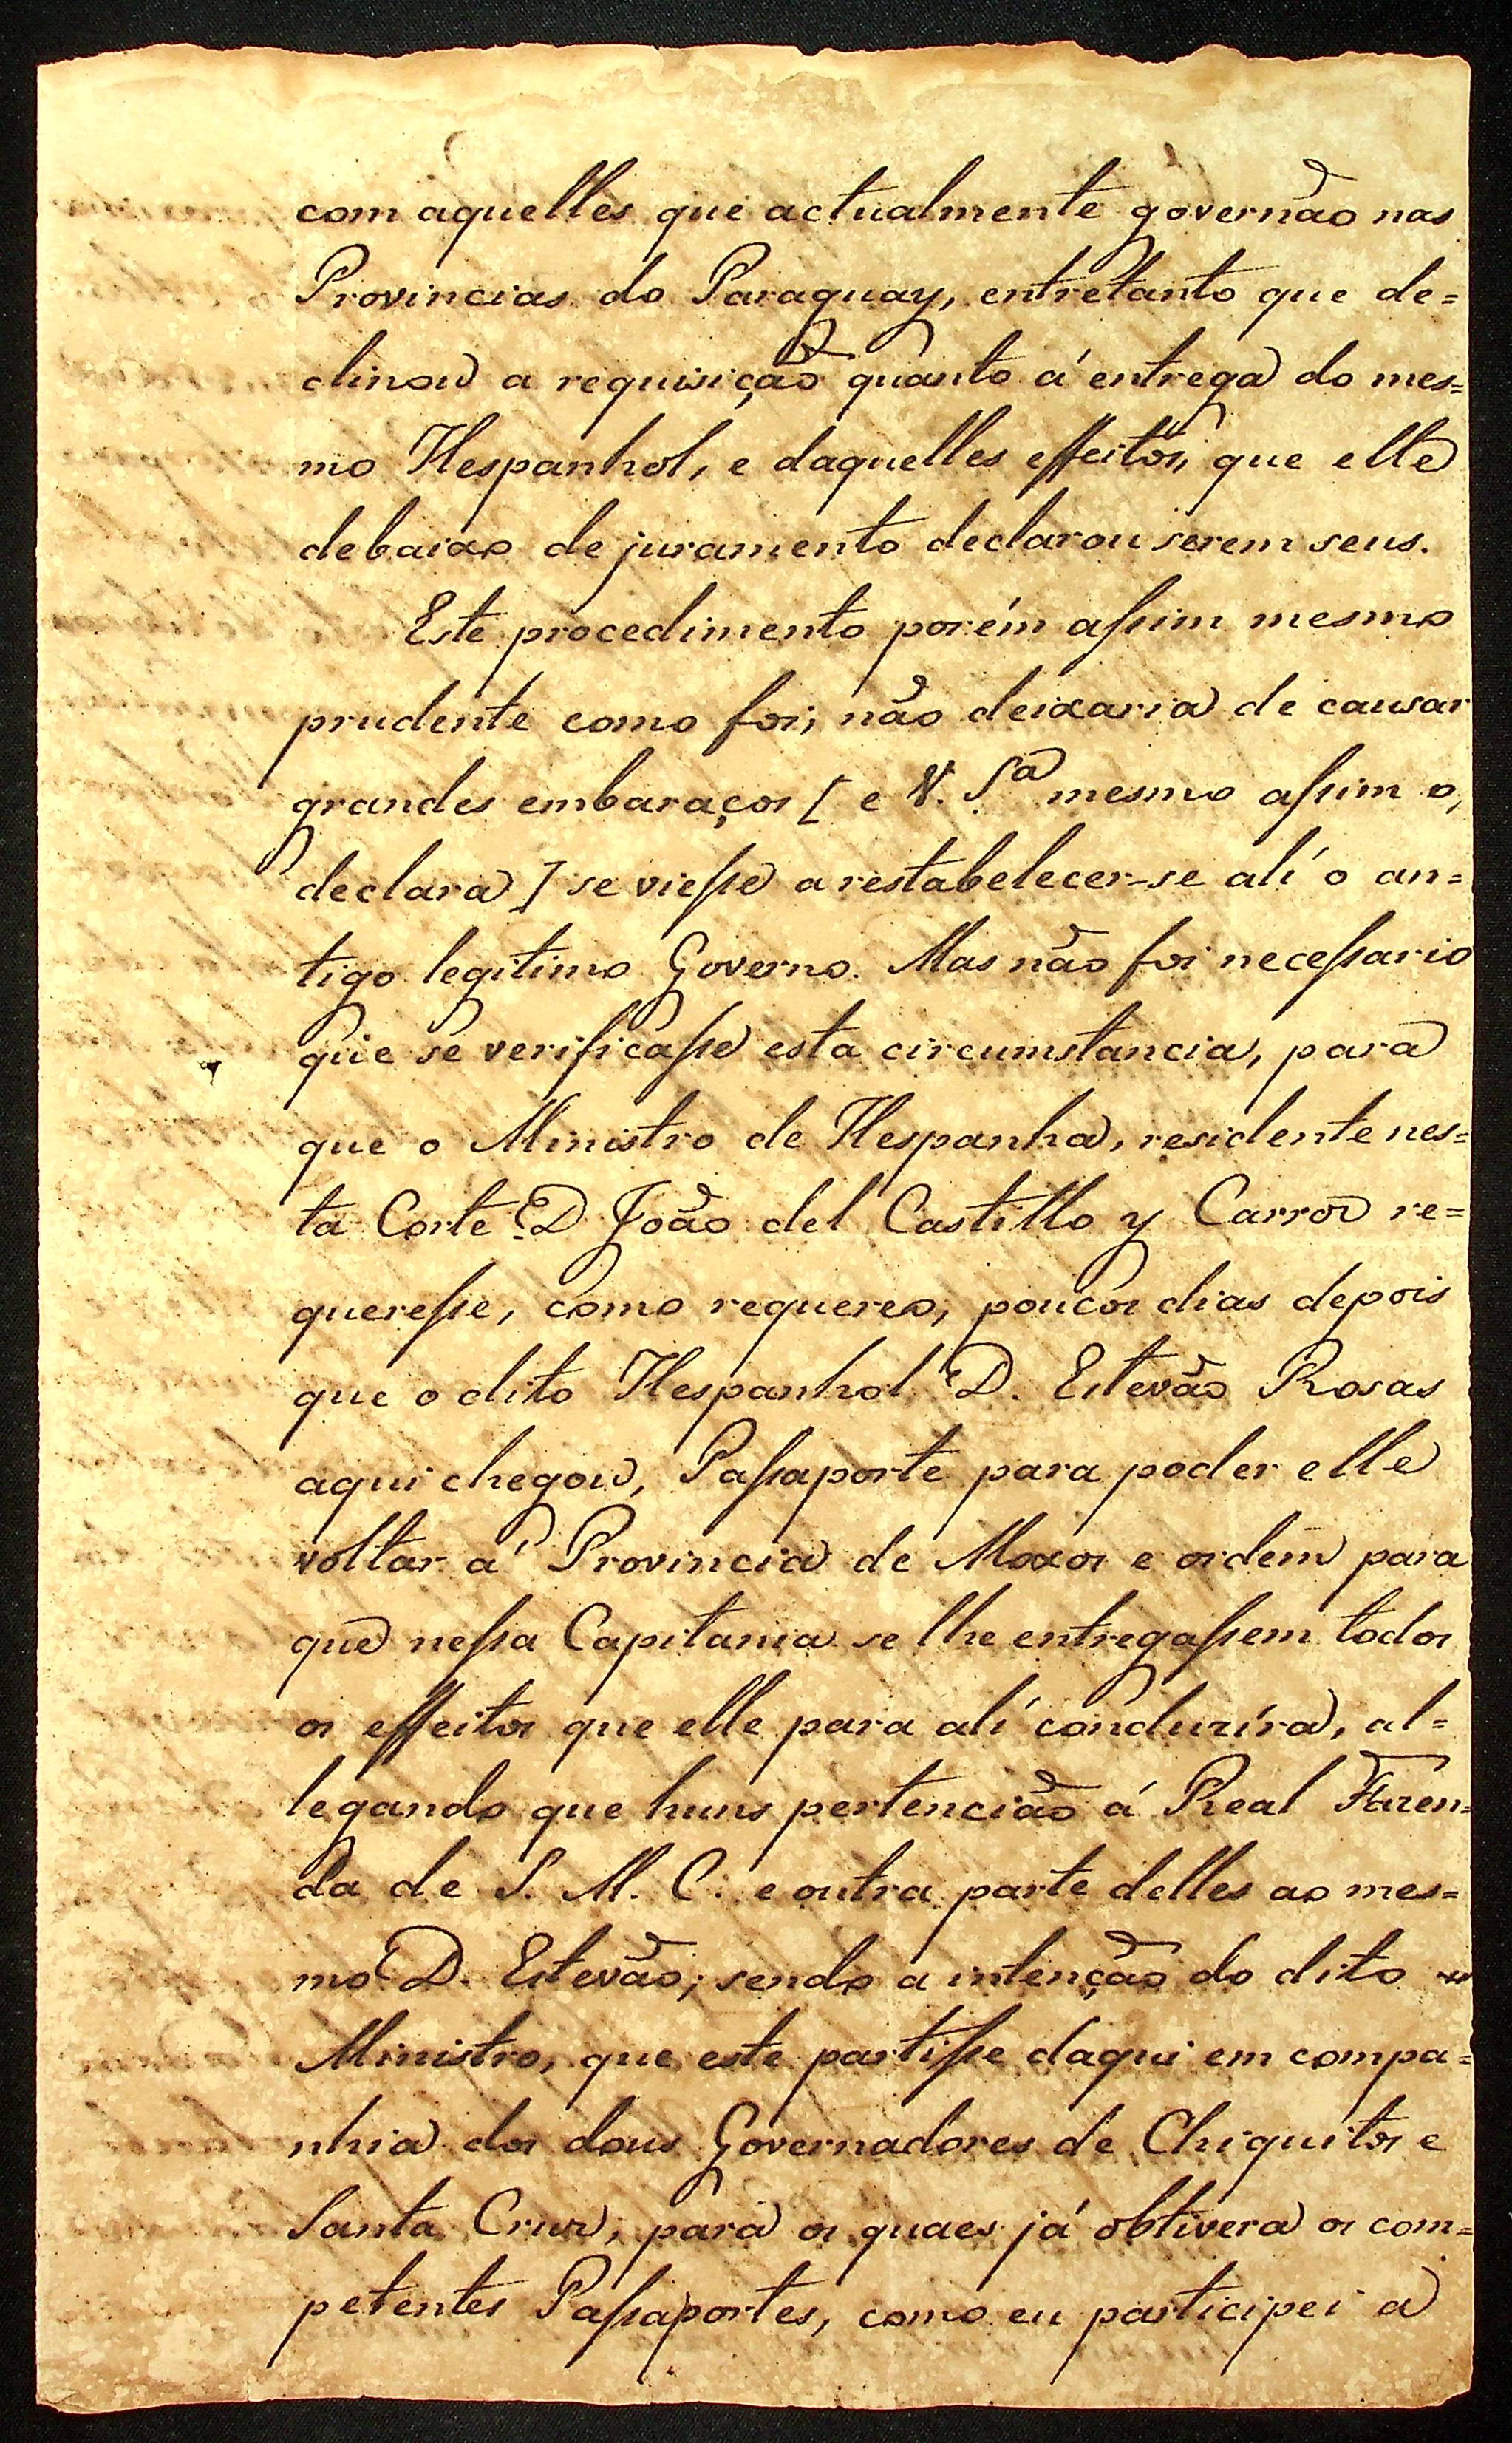 com aquelles que actualmente governão nas
Provincias do Paraguay, entretanto que de=
clinou a requisição quanto á entrega do mes=
mo Hespanhol, e daquelles effeitos, que elle
debaixo de juramento declarou serem seus.
Este procedimento porém assim mesmo
prudente como foi, não deixaria de causar
grandes embaraços [ e V. Sª mesmo assim o,
declara ] se viesse a restabelecer-se alí o an=
tigo legitimo Governo. Mas não foi necessario
que se verificasse esta circumstancia, para
que o Ministro de Hespanha, residente nes=
ta Corte D João del Castillo y Carroz re=
queresse, como requereo, poucos dias depois
que o dito Hespanhol D. Estevão Rosas
aqui chegou, Passaporte para poder elle
voltar á Provincia de Moxos e ordem para
que nessa Capitania se lhe entregassem todos
os effeitos que elle para alí conduzíra, al=
legando que huns pertencião á Real Fazen=
da de S. M. C. e outra parte delles ao mes=
mo D. Estevão; sendo a intenção do dito
Ministro, que este partisse daqui em compa=
nhia dos dous Governadores de Chiquitos e
Santa Cruz, para os quaes já obtivera os com=
petentes Passaportes, como eu participei a